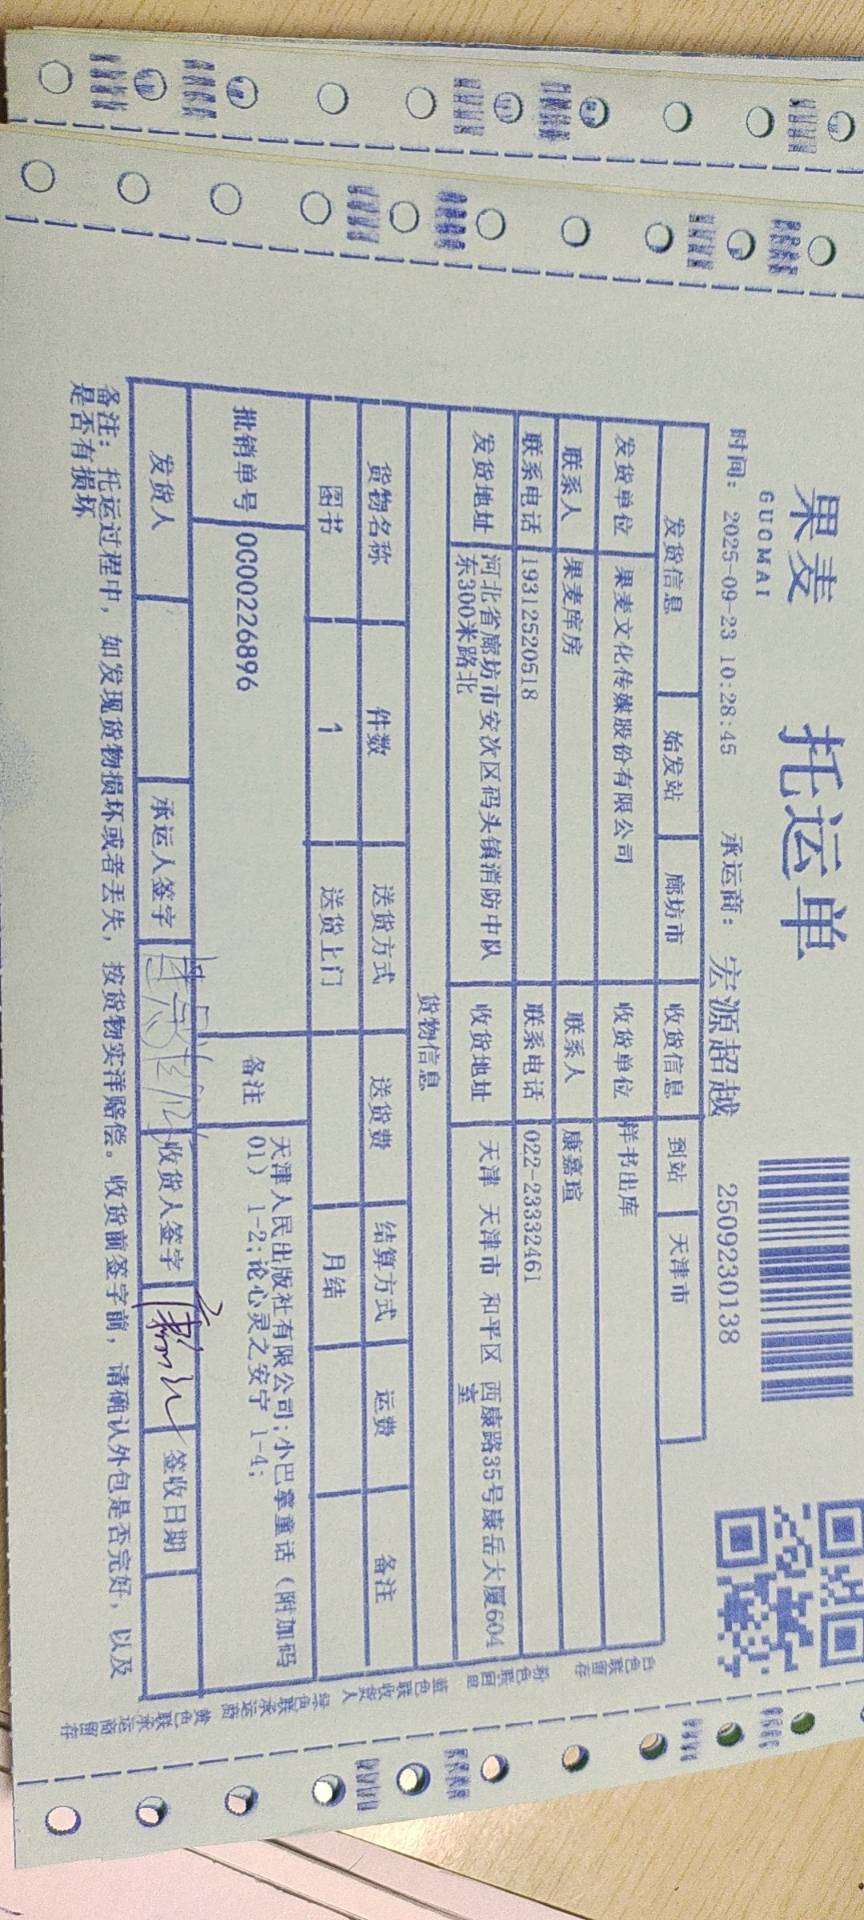 果麦
GUOMAI
托运单
时间: 2025-09-23 10:28:45 承运商: 宏源超越 2509230138
发货信息 始发站 廊坊市 收货信息 到站 天津市
发货单位 果麦文化传媒股份有限公司 收货单位 样书出库
联系人 果麦库房 联系人 康嘉瑄
联系电话 19312520518 联系电话 022-23332461
发货地址 河北省廊坊市安次区码头镇消防中队
东300米路北
收货地址 天津 天津市 和平区 西康路35号康岳大厦604
室
货物信息
货物名称 件数 送货方式 送货费 结算方式 运费 备注
图书 1 送货上门 月结
批销单号 OC00226896 备注 天津人民出版社有限公司;小巴掌童话（附加码
01） 1-2;论心灵之安宁 1-4;
发货人 承运人签字 收货人签字 签收日期
备注: 托运过程中, 如发现货物损坏或者丢失, 按货物实洋赔偿。收货前签字前, 请确认外包是否完好, 以及
是否有损坏
白色联留存
粉色联回单
蓝色联收货人
绿色联承运商
黄色联承运商留存